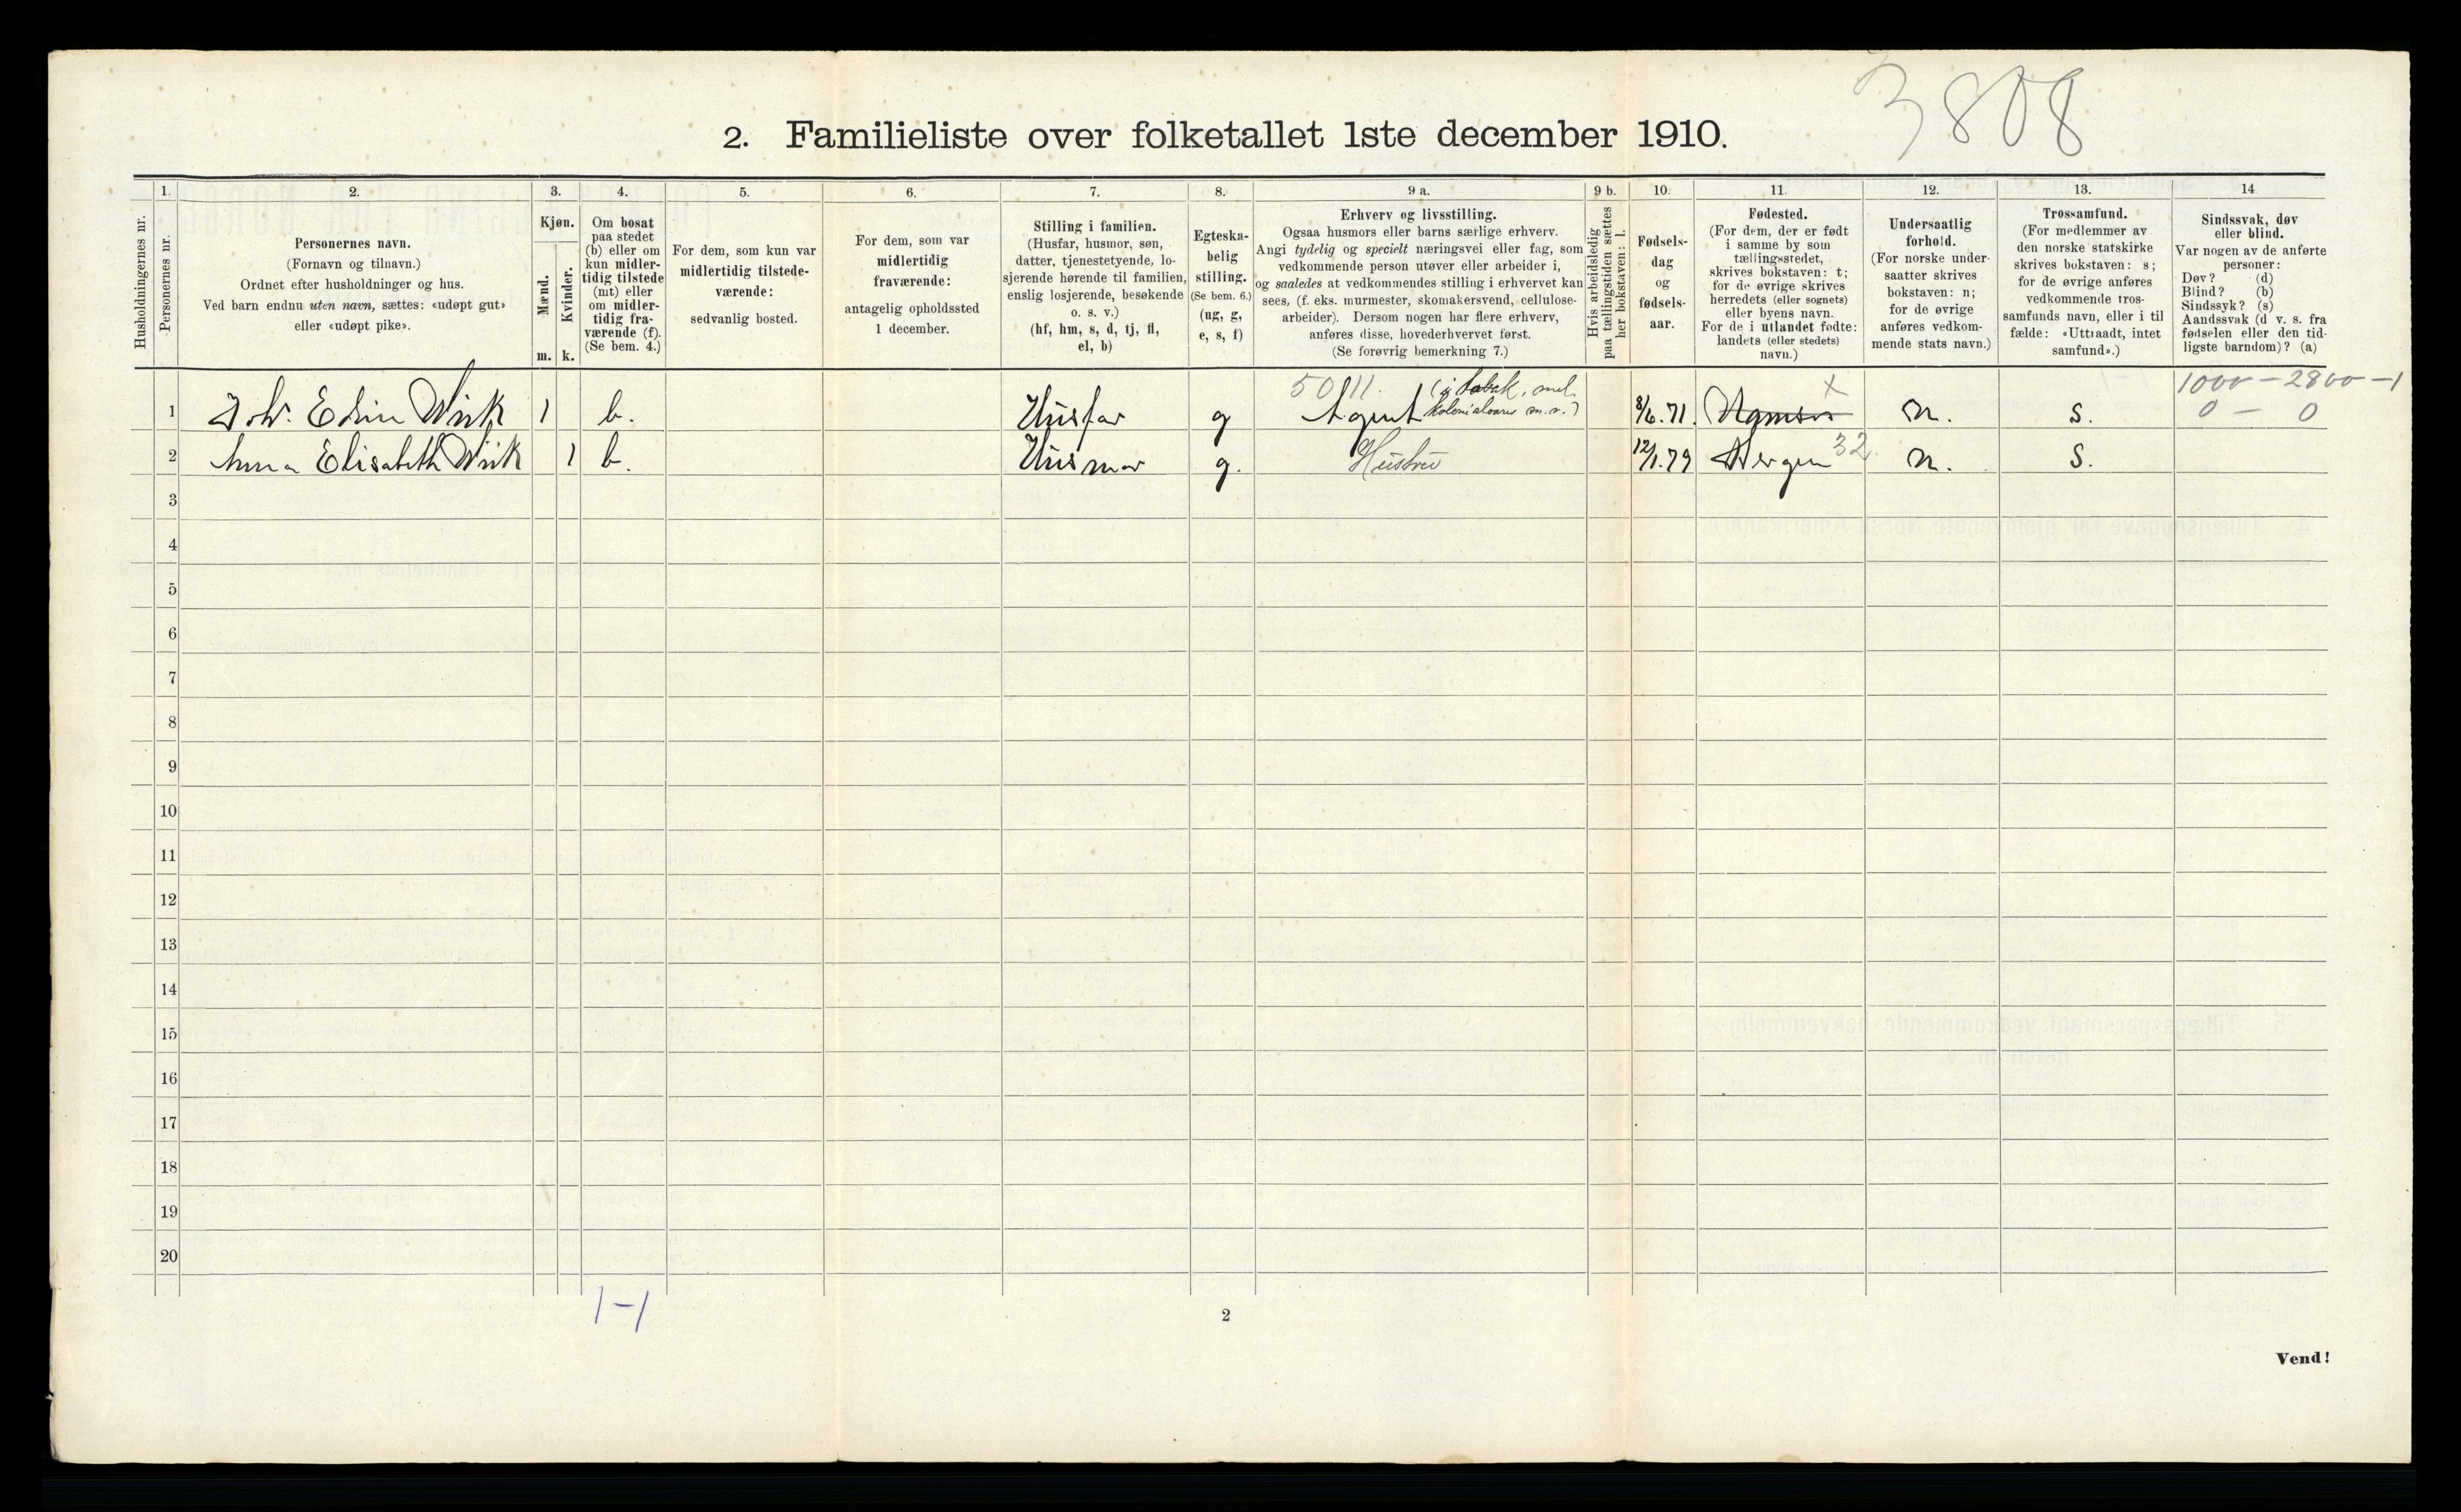 3808
2. Familieliste over folketallet 1ste december 1910.
1. 2. 3. 4. 5. 6. 7. 8. 9 a. 9 b. 10. 11. 12. 13. 14
Husholdningernes nr.
Personernes nr.
Personernes navn.
(Fornavn og tilnavn.)
Ordnet efter husholdninger og hus.
Ved barn endnu uten navn, sættes: «udøpt gut»
eller «udøpt pike».
Kjøn.
Mænd.
Kvinder.
m. k.
Om bosat
paa stedet
(b) eller om
kun midler-
tidig tilstede
(mt) eller
om midler-
tidig fra-
værende (f).
(Se bem. 4.)
For dem, som kun var
midlertidig tilstede-
værende:
sedvanlig bosted.
For dem, som var
midlertidig
fraværende:
antagelig opholdssted
1 december.
Stilling i familien.
(Husfar, husmor, søn,
datter, tjenestetyende, lo-
sjerende hørende til familien,
enslig losjerende, besøkende
o. s. v.)
(hf, hm, s, d, tj, fl,
el, b)
Egteska-
belig
stilling.
(Se bem. 6.)
(ug, g,
e, s, f)
Erhverv og livsstilling.
Ogsaa husmors eller barns særlige erhverv.
Angi tydelig og specielt næringsvei eller fag, som
vedkommende person utøver eller arbeider i,
og saaledes at vedkommendes stilling i erhvervet kan
sees, (f. eks. murmester, skomakersvend, cellulose-
arbeider). Dersom nogen har flere erhverv,
anføres disse, hovederhvervet først.
(Se forøvrig bemerkning 7.)
Hvis arbeidsledig
paa tællingstiden sættes
her bokstaven: l.
Fødsels-
dag
og
fødsels-
aar.
Fødested.
(For dem, der er født
i samme by som
tællingsstedet,
skrives bokstaven: t;
for de øvrige skrives
herredets (eller sognets)
eller byens navn.
For de i utlandet fødte:
landets (eller stedets)
navn.)
Undersaatlig
forhold.
(For norske under-
saatter skrives
bokstaven: n;
for de øvrige
anføres vedkom-
mende stats navn.)
Trossamfund.
(For medlemmer av
den norske statskirke
skrives bokstaven: s;
for de øvrige anføres
vedkommende tros-
samfunds navn, eller i til
fælde: «Uttraadt, intet
samfund».)
Sindssvak, døv
eller blind.
Var nogen av de anførte
personer:
Døv? (d)
Blind? (b)
Sindssyk? (s)
Aandssvak (d v. s. fra
fødselen eller den tid-
ligste barndom)? (a)
5011. (i tobak, mel X 1000 - 2800 - 1
1 Joh. Edvin Wiik 1 b. Husfar g Agent kolonialvarer m.v.) 8/6.71. n. s. 0 - 0
2 Anna Elisabeth Wiik 1 b. Husmor g. Hustru 12/1.79 Bergen 32. n. s.
3
4
5
6
7
8
9
10
11
12
13
14
15
16
17
18
19
20
1-1
2
Vend!